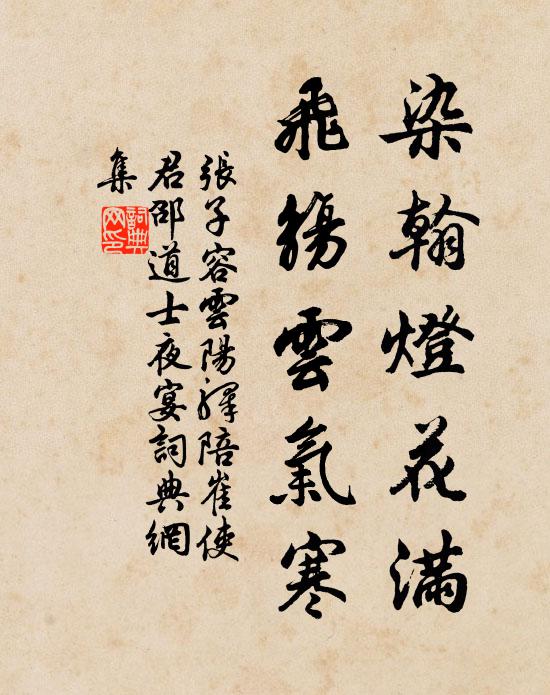 染翰燈花滿
飛觴雲氣寒
張子容雲陽驛陪崔使
君邵道士夜宴詞典網
集
詞典
网印